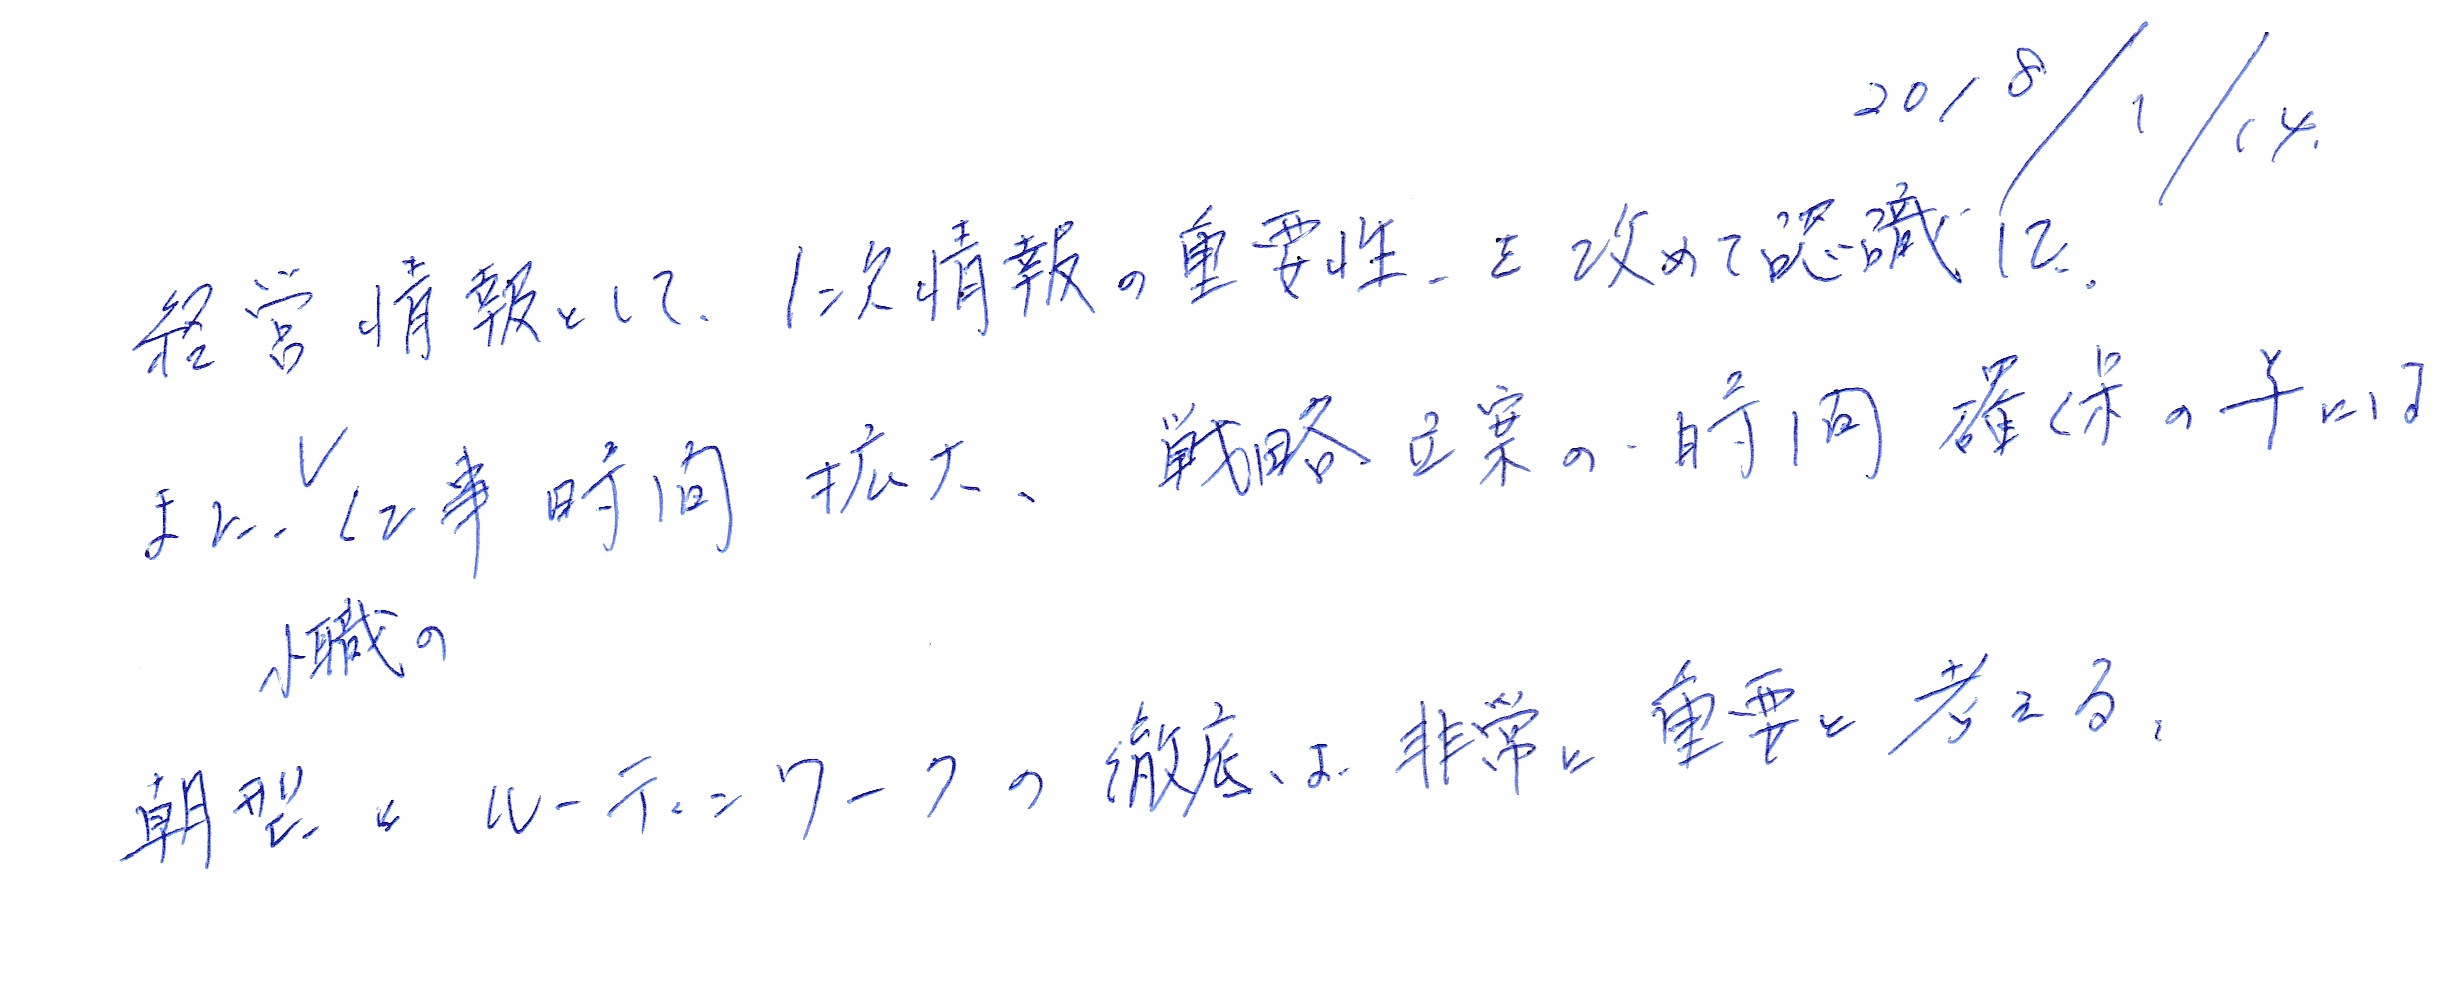 2018/1/14.
経営情報として、1次情報の重要性を改めて認識した。
また、仕事時間拡大、戦略立案の時間確保の
職の
朝型とルーティンワークの徹底は非常に重要と考える。